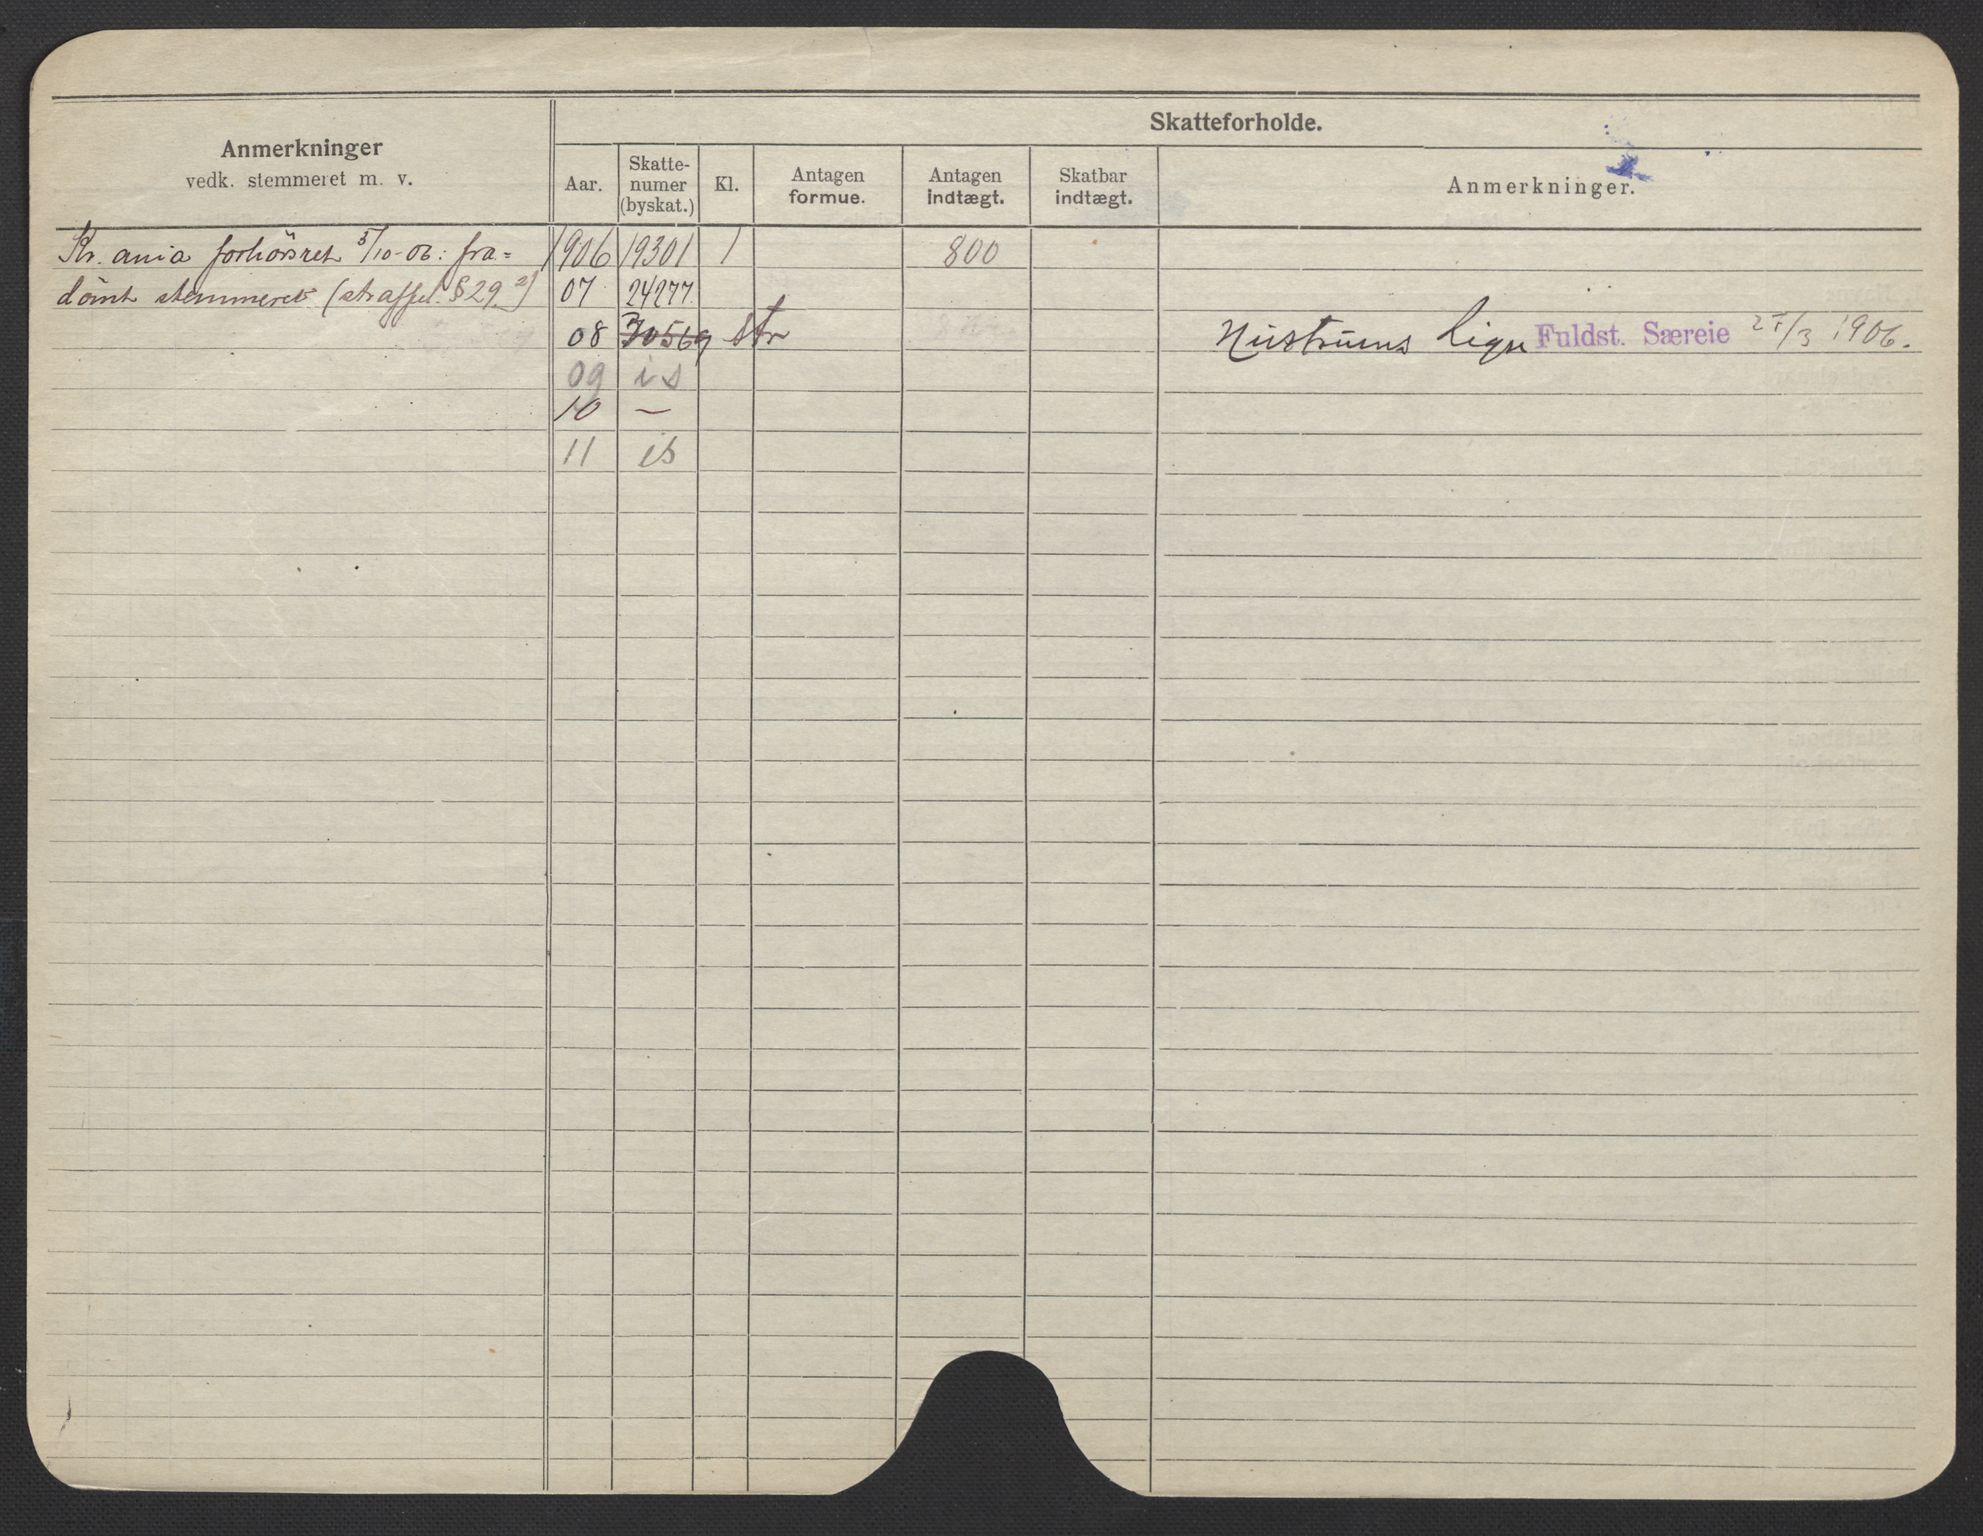 Skatteforholde.
Anmerkninger
vedk. stemmeret m. v.
Aar.
Skatte-
numer
(byskat.)
Kl.
Antagen
formue.
Antagen
indtægt.
Skatbar
indtægt.
Anmerkninger.
Kr.ania forhörsret 5/10-06: fra=
dömt stemmeret (straffel. § 29 2)
1906 19301 1 800
07 24277
08 30569 str
Hustruens Fuldst. Særeie /3 1906.
09 is
10 —
11 is